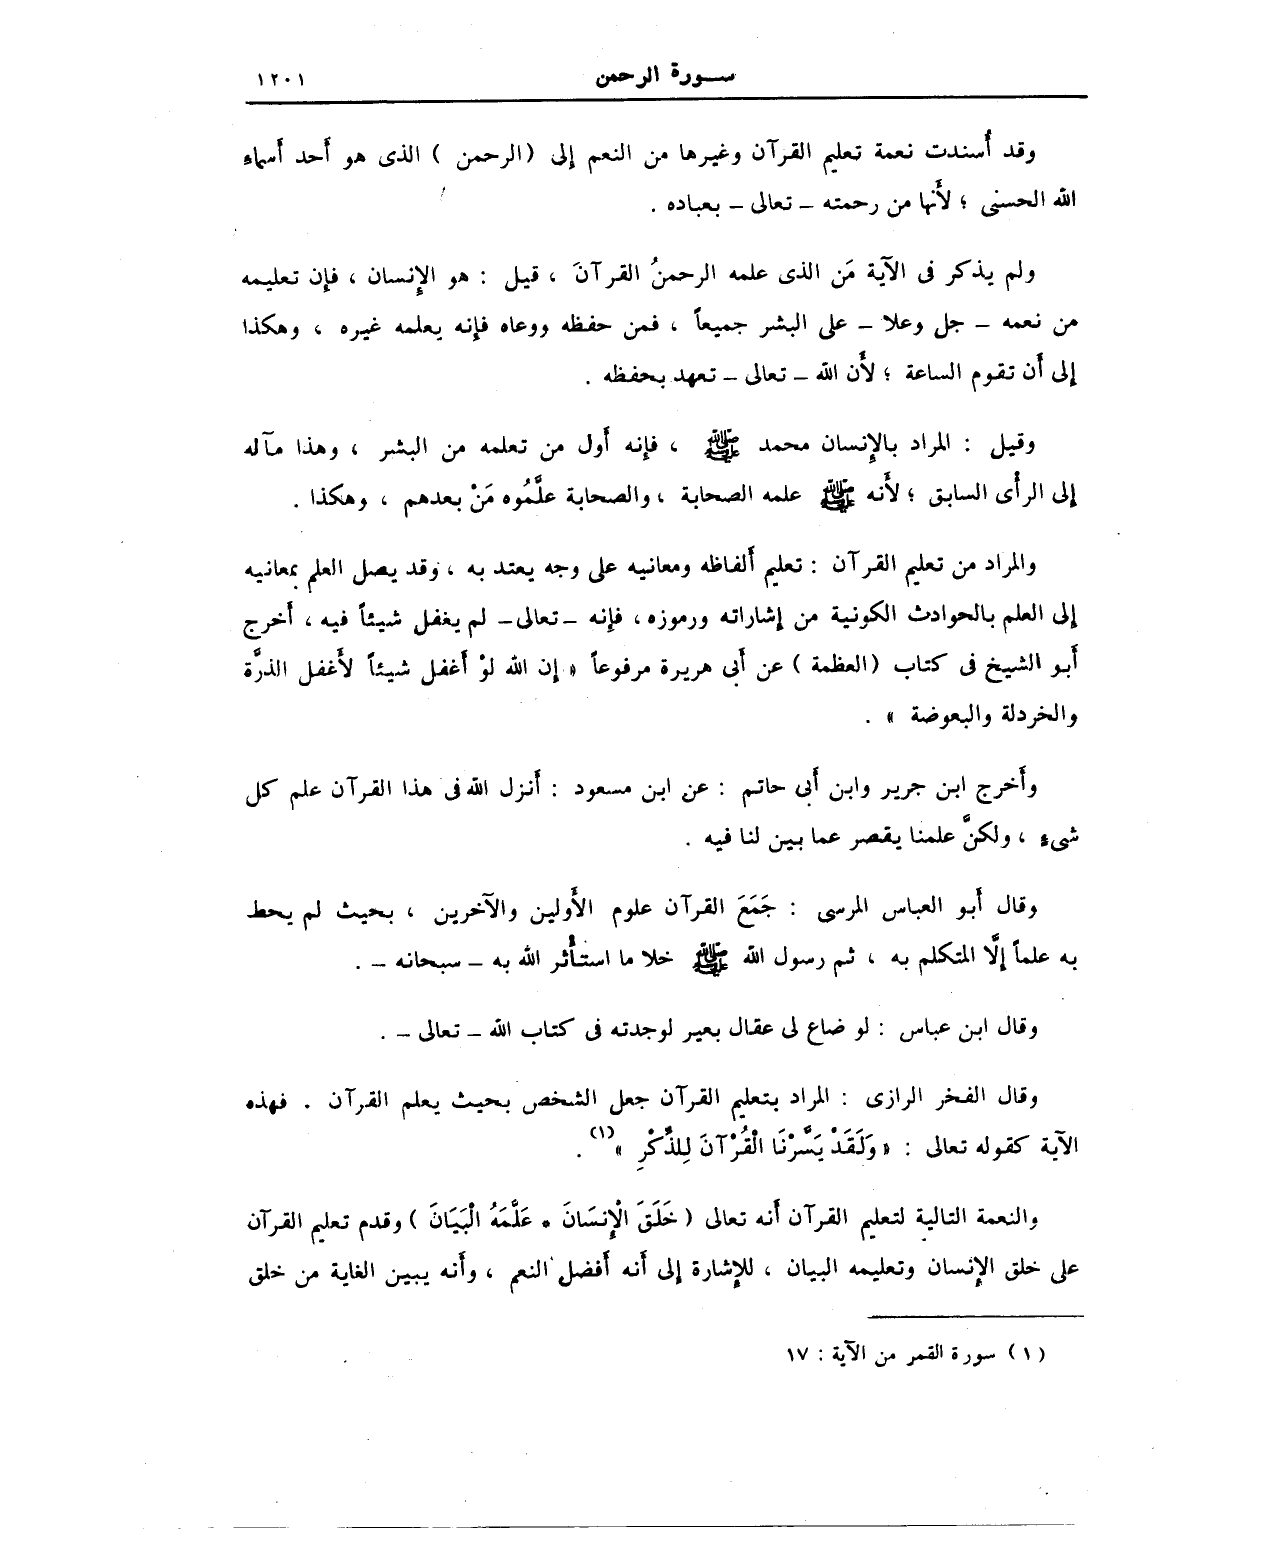 سـورة الرحمن
١٢٠١
وقد أُسندت نعمة تعليم القرآن وغيرها من النعم إلى (الرحمن ) الذى هو أَحد أَسماء
الله الحسنى ؛ لأَنها من رحمته – تعالى – بعباده .
ولم يذكر فى الآية مَن الذى علمه الرحمنُ القرآنَ ، قيل : هو الإِنسان ، فإِن تعليمه
من نعمه – جل وعلا – على البشر جميعاً ، فمن حفظه ووعاه فإنه يعلمه غيره ، وهكذا
إلى أَن تقوم الساعة ؛ لأَن الله – تعالى – تعهد بحفظه .
وقيل : المراد بالإِنسان محمد ﷺ ، فإِنه أَول من تعلمه من البشر ، وهذا مآله
إلى الرأْى السابق ؛ لأَنه ﷺ علمه الصحابة ، والصحابة علَّمُوه مَنْ بعدهم ، وهكذا .
والمراد من تعليم القرآن : تعليم أَلفاظه ومعانيه على وجه يعتد به ، وقد يصل العلم بمعانيه
إلى العلم بالحوادث الكونية من إشاراته ورموزه ، فإنه – تعالى – لم يغفل شيئاً فيه ، أَخرج
أَبو الشيخ فى كتاب (العظمة ) عن أَبى هريرة مرفوعاً « إن الله لوْ أَغفل شيئاً لأَغفل الذرَّة
والخردلة والبعوضة » .
وأَخرج ابن جرير وابن أَبى حاتم : عن ابن مسعود : أَنزل الله فى هذا القرآن علم كل
شىء ، ولكنَّ علمنا يقصر عما بين لنا فيه .
وقال أَبو العباس المرسى : جَمَعَ القرآن علوم الأَولين والآخرين ، بحيث لم يحط
به علماً إلَّا المتكلم به ، ثم رسول الله ﷺ خلا ما استأْثر الله به – سبحانه – .
وقال ابن عباس : لو ضاع لى عقال بعير لوجدته فى كتاب الله – تعالى – .
وقال الفخر الرازى : المراد بتعليم القرآن جعل الشخص بحيث يعلم القرآن . فهذه
الآية كقوله تعالى : « وَلَقَدْ يَسَّرْنَا الْقُرْآنَ لِلذِّكْرِ »(١) .
والنعمة التالية لتعليم القرآن أَنه تعالى ( خَلَقَ الْإِنسَانَ * عَلَّمَهُ الْبَيَانَ ) وقدم تعليم القرآن
على خلق الإِنسان وتعليمه البيان ، للإِشارة إلى أَنه أَفضل النعم ، وأَنه يبين الغاية من خلق
(١) سورة القمر من الآية : ١٧